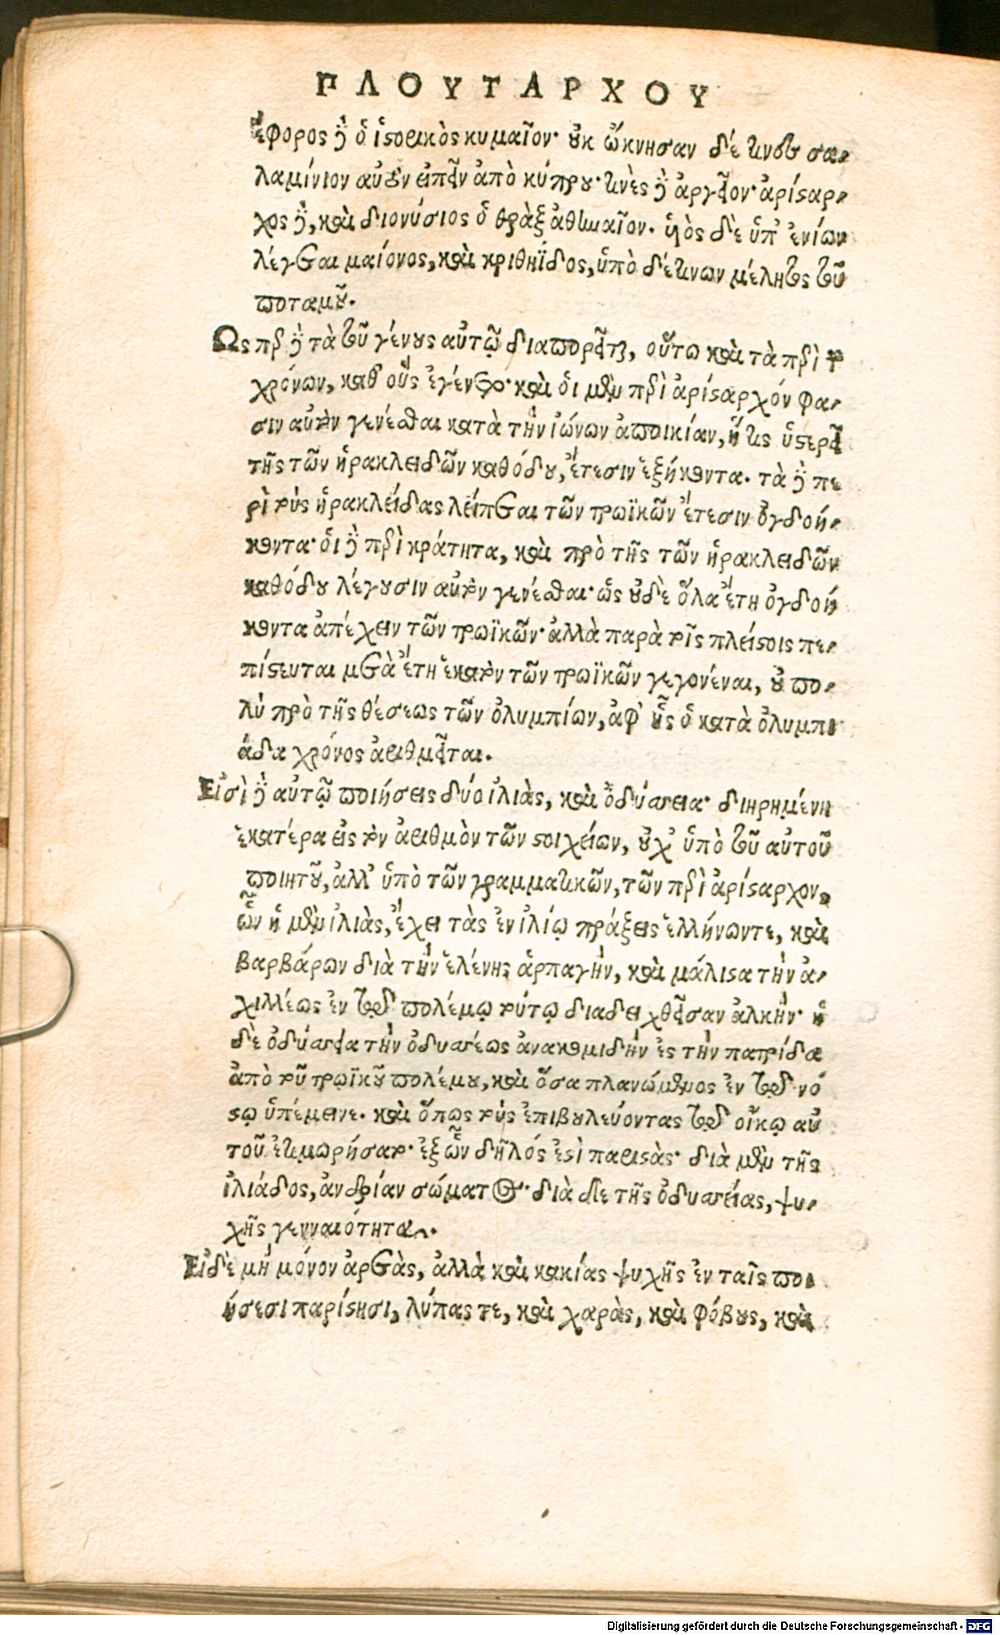 ΠΛΟΥΤΑΡΧΟΥ
ἔφορος δὲ ὁ ἱστορικὸς κυμαῖον· οὐκ ὤκνησαν δέ τινες σα-
λαμίνιον αὐτὸν εἰπεῖν ἀπὸ κύπρου· τινὲς δὲ ἀργεῖον· ἀρίσταρ-
χος δὲ, καὶ διονύσιος ὁ θρὰξ ἀθηναῖον. υἱὸς δὲ ὑπ' ἐνίων
λέγεται μαίονος, καὶ κριθηΐδος, ὑπὸ δέ τινων μέλητος τοῦ
ποταμοῦ.
Ὥσπερ δὲ τὰ τοῦ γένους αὐτῷ διαπορεῖται, οὕτω καὶ τὰ περὶ τῶν
χρόνων, καθ' οὓς ἐγένετο· καὶ οἱ μὲν περὶ ἀρίσταρχόν φα-
σιν αὐτὸν γενέσθαι κατὰ τὴν ἰώνων ἀποικίαν, ἥτις ὑστερεῖ
τῆς τῶν ἡρακλειδῶν καθόδου, ἔτεσιν ἑξήκοντα. τὰ δὲ πε
ρὶ τοὺς ἡρακλείδας λείπεται τῶν τρωϊκῶν ἔτεσιν ὀγδοή-
κοντα· οἱ δὲ περὶ κράτητα, καὶ πρὸ τῆς τῶν ἡρακλειδῶν
καθόδου λέγουσιν αὐτὸν γενέσθαι· ὡς οὐδὲ ὅλα ἔτη ὀγδοή
κοντα ἀπέχειν τῶν τρωϊκῶν· ἀλλὰ παρὰ τοῖς πλείστοις πε-
πίστευται μετὰ ἔτη ἑκατὸν τῶν τρωϊκῶν γεγονέναι, οὐ πο-
λὺ πρὸ τῆς θέσεως τῶν ὀλυμπίων, ἀφ' ἧς ὁ κατὰ ὀλυμπι
άδα χρόνος ἀριθμεῖται.
Εἰσὶ δὲ αὐτῷ ποιήσεις δύο ἰλιὰς, καὶ ὀδύσσεια· διηρημένη
ἑκατέρα εἰς τὸν ἀριθμὸν τῶν στοιχείων, οὐχ' ὑπὸ τοῦ αὐτοῦ
ποιητοῦ, ἀλλ' ὑπὸ τῶν γραμματικῶν, τῶν περὶ ἀρίσταρχον,
ὧν ἡ μὲν ἰλιὰς, ἔχει τὰς ἐν ἰλίῳ πράξεις ἑλλήνωντε, καὶ
βαρβάρων διὰ τὴν ἑλένης ἁρπαγὴν, καὶ μάλιστα τὴν ἀ-
χιλλέως ἐν τῷ πολέμῳ τούτῳ διαδειχθεῖσαν ἀλκήν· ἡ
δὲ ὀδύσσεια τὴν ὀδυσσέως ἀνακομιδὴν ἐς τὴν πατρίδα
ἀπὸ τοῦ τρωϊκοῦ πολέμου, καὶ ὅσα πλανώμενος ἐν τῷ νό
στῳ ὑπέμεινε. καὶ ὅπως τοὺς ἐπιβουλεύοντας τῷ οἴκῳ αὐ
τοῦ ἐτιμωρήσατο· ἐξ ὧν δῆλός ἐστι παριστὰς· διὰ μὲν τῆς
ἰλιάδος, ἀνδρίαν σώματος· διὰ δὲ τῆς ὀδυσσείας, ψυ-
χῆς γενναιότητα.
Εἰ δὲ μὴ μόνον ἀρετὰς, ἀλλὰ καὶ κακίας ψυχῆς ἐν ταῖς ποι
ήσεσι παρίστησι, λύπας τε, καὶ χαρὰς, καὶ φόβους, καὶ
Digitalisierung gefördert durch die Deutsche Forschungsgemeinschaft - DFG